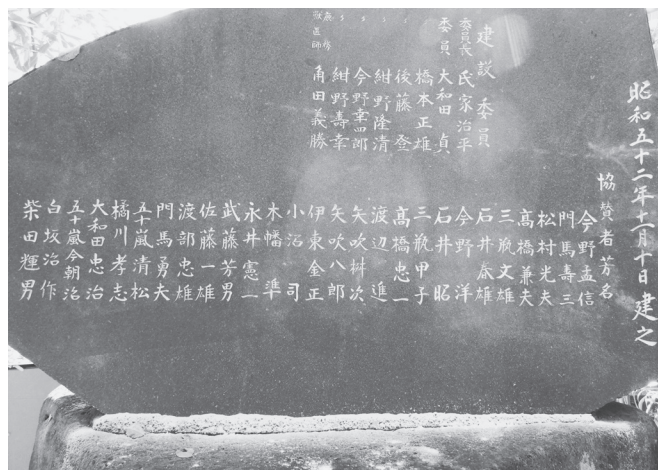 昭和五十二年十一月十日 建之
建設委員
委員長 氏家治平
委員 大和田 貞
〃 橋本正雄
〃 後藤 登
〃 紺野隆清
〃 今野幸四郎
〃 紺野壽幸
角田義勝
協賛者芳名
今野孟信
門馬壽三
松村光夫
高橋兼夫
三瓶文雄
石井泰雄
今野 洋
石井 昭
三瓶甲子
髙橋忠一
渡辺 進
矢吹桝次
矢吹八郎
伊東金正
小沼 司
木幡 準
永井憲一
武藤芳男
佐藤一雄
渡部忠雄
門馬勇夫
五十嵐清松
橘川孝志
大和田忠治
五十嵐今朝治
白坂治作
柴田輝男